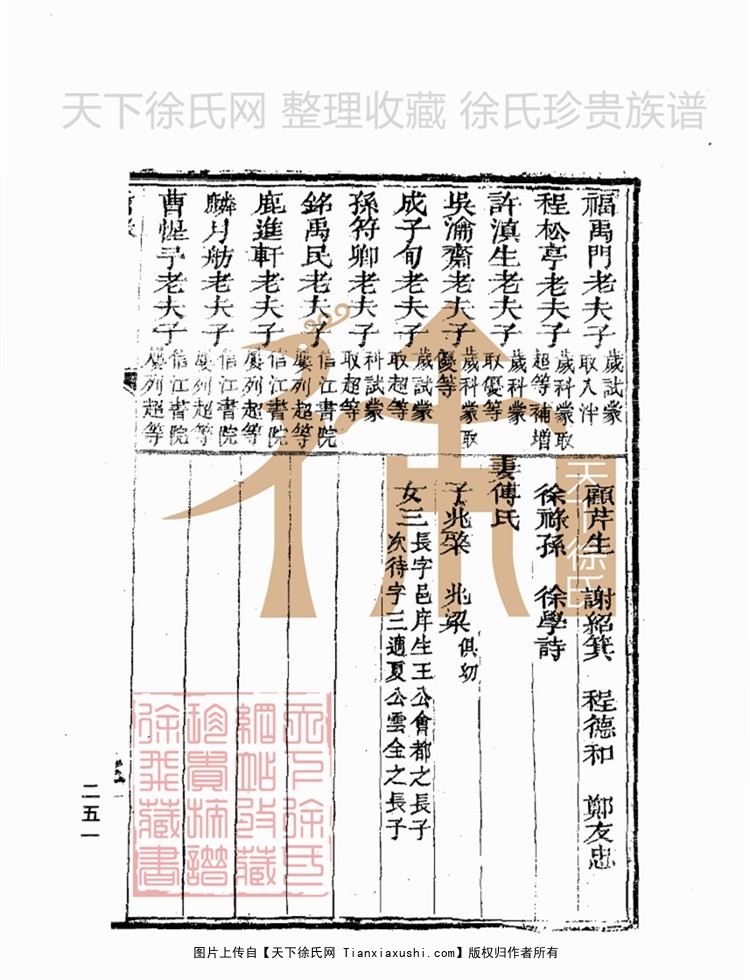 天下徐氏网 整理收藏 徐氏珍贵族谱
福禹門老夫子 歲試蒙取入泮
程松亭老夫子 歲科蒙取超等補增
許滇生老夫子 歲科蒙取優等
吳瀹齋老夫子 歲科蒙取優等
成子旬老夫子 歲試蒙取超等
孫符卿老夫子 科試蒙取超等
銘禹民老夫子 信江書院屢列超等
鹿進軒老夫子 信江書院屢列超等
麟月舫老夫子 信江書院屢列超等
曹惺予老夫子 信江書院屢列超等
顧芹生 謝紹箕 程德和 鄭友忠
徐祿孫 徐學詩
妻傅氏
子兆榮 兆梁 俱幼
女三 長字邑庠生王公會都之長子
次待字三適夏公雲全之長子
二五一
天下徐氏
天下徐氏網站收藏珍貴族譜徐飛藏書
图片上传自【天下徐氏网 Tianxiaxushi.com】版权归作者所有